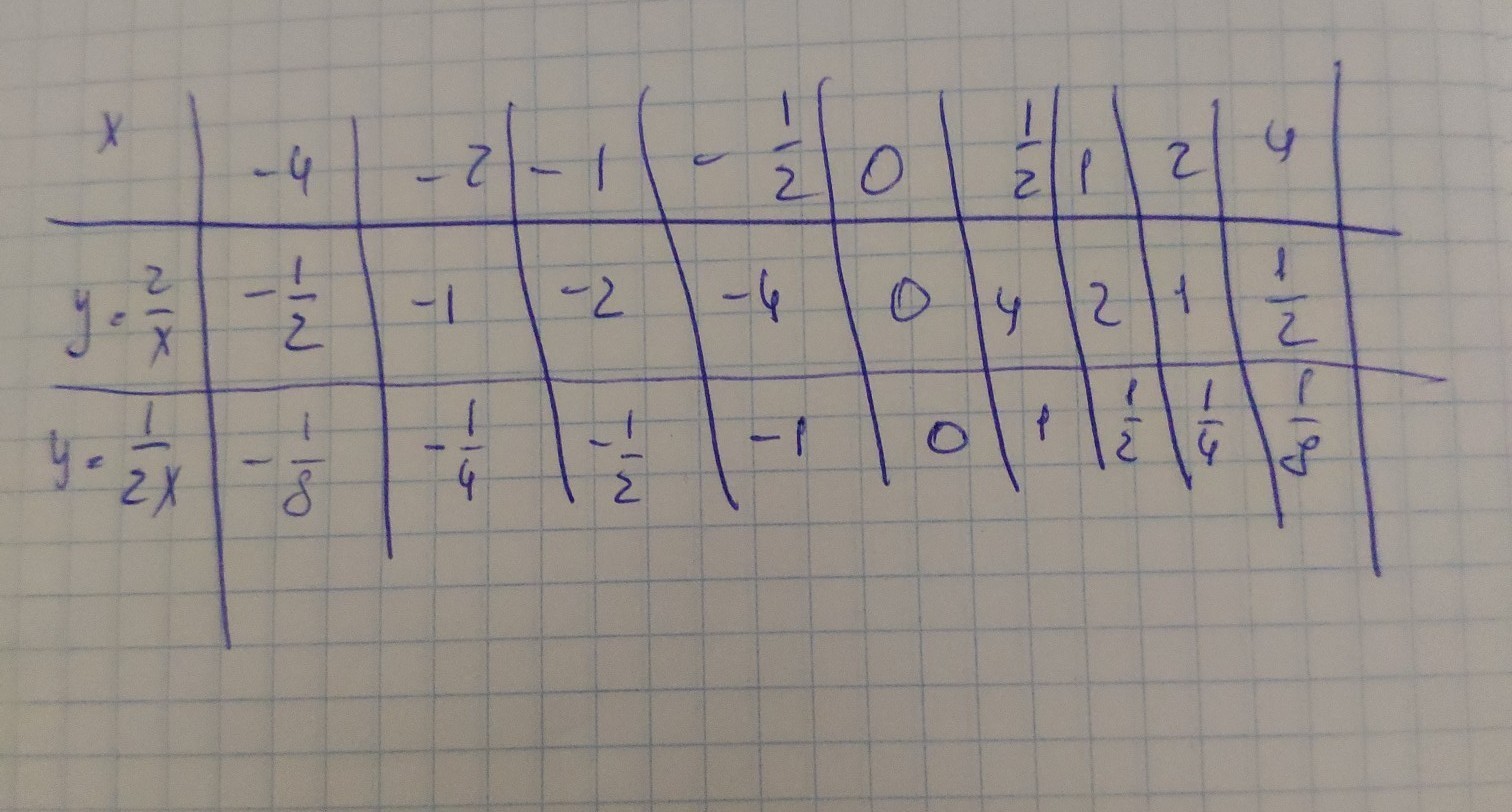 x -4 -2 -1 -1/2 0 1/2 1 2 4
y=2/x -1/2 -1 -2 -4 0 4 2 1 1/2
y=1/2x -1/8 -1/4 -1/2 -1 0 1 1/2 1/4 1/8